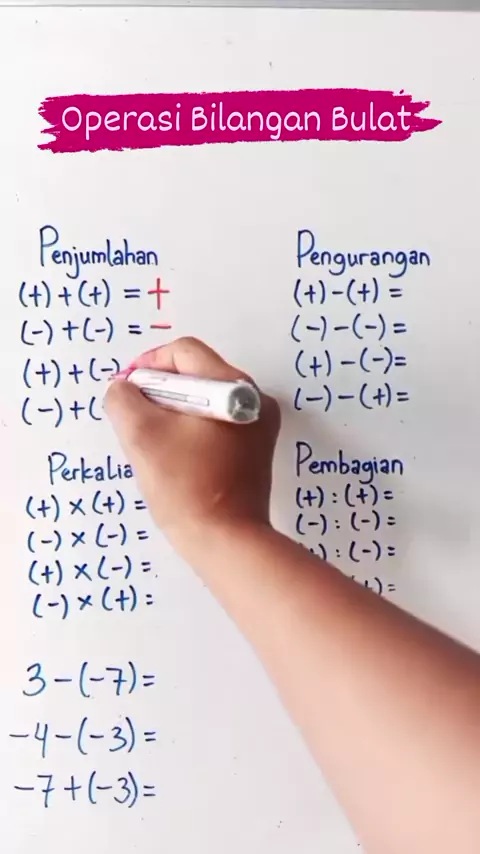 Operasi Bilangan Bulat
Penjumlahan
(+) + (+) = +
(-) + (-) = -
(+) + (-)
(-) + (
Pengurangan
(+) - (+) =
(-) - (-) =
(+) - (-) =
(-) - (+) =
(+) × (+) =
(-) × (-) =
(+) × (-) =
(-) × (+) =
Pembagian
(+) : (+) =
(-) : (-) =
) : (-) =
+) =
3 - (-7) =
-4 - (-3) =
-7 + (-3) =